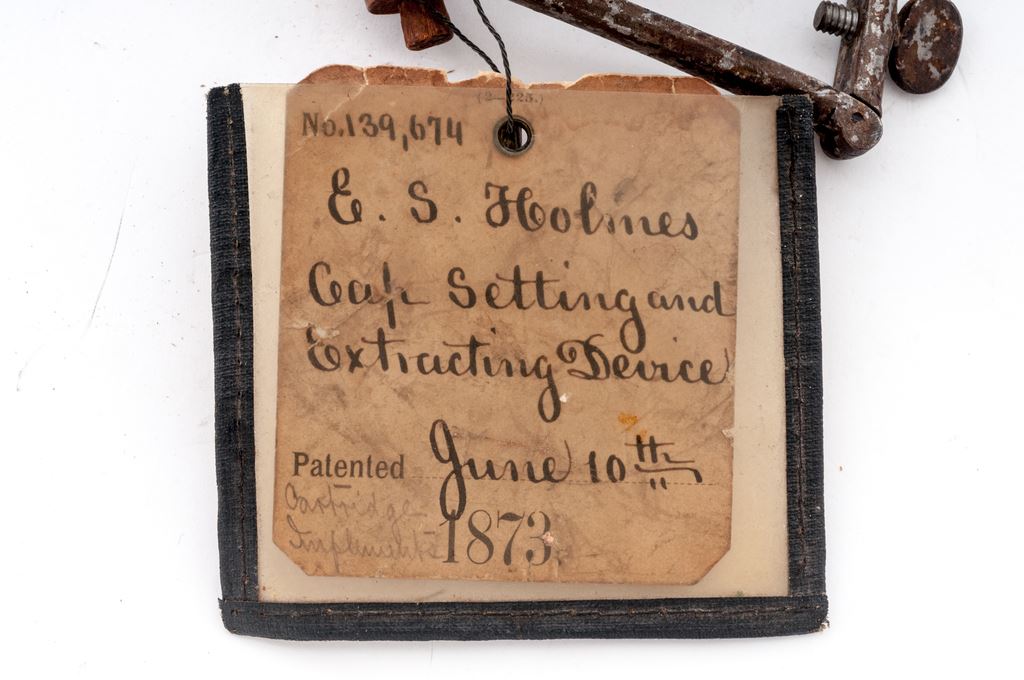 No. 139,674
E. S. Holmes
Cap Setting and
Extracting Device
Patented June 10th
Cartridge
Implements
1873.